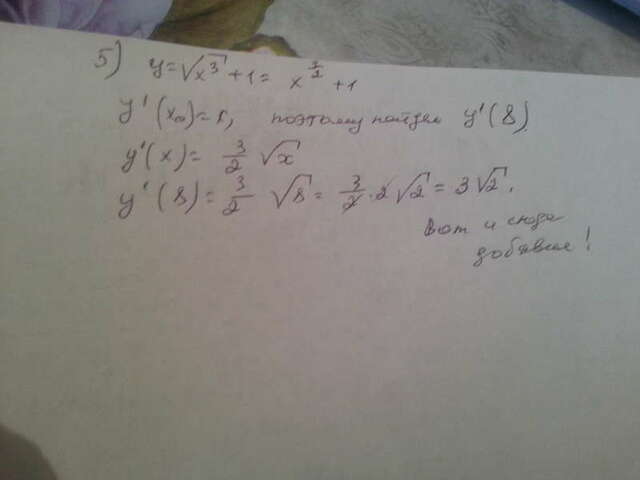 5) y=√x³+1= x^(3/2) +1
y'(x₀)=k, поэтому найдем y'(8)
y'(x)= 3/2 √x
y'(8)= 3/2 √8 = 3/2 · 2√2 = 3√2.
Вот и сюда
добавила!